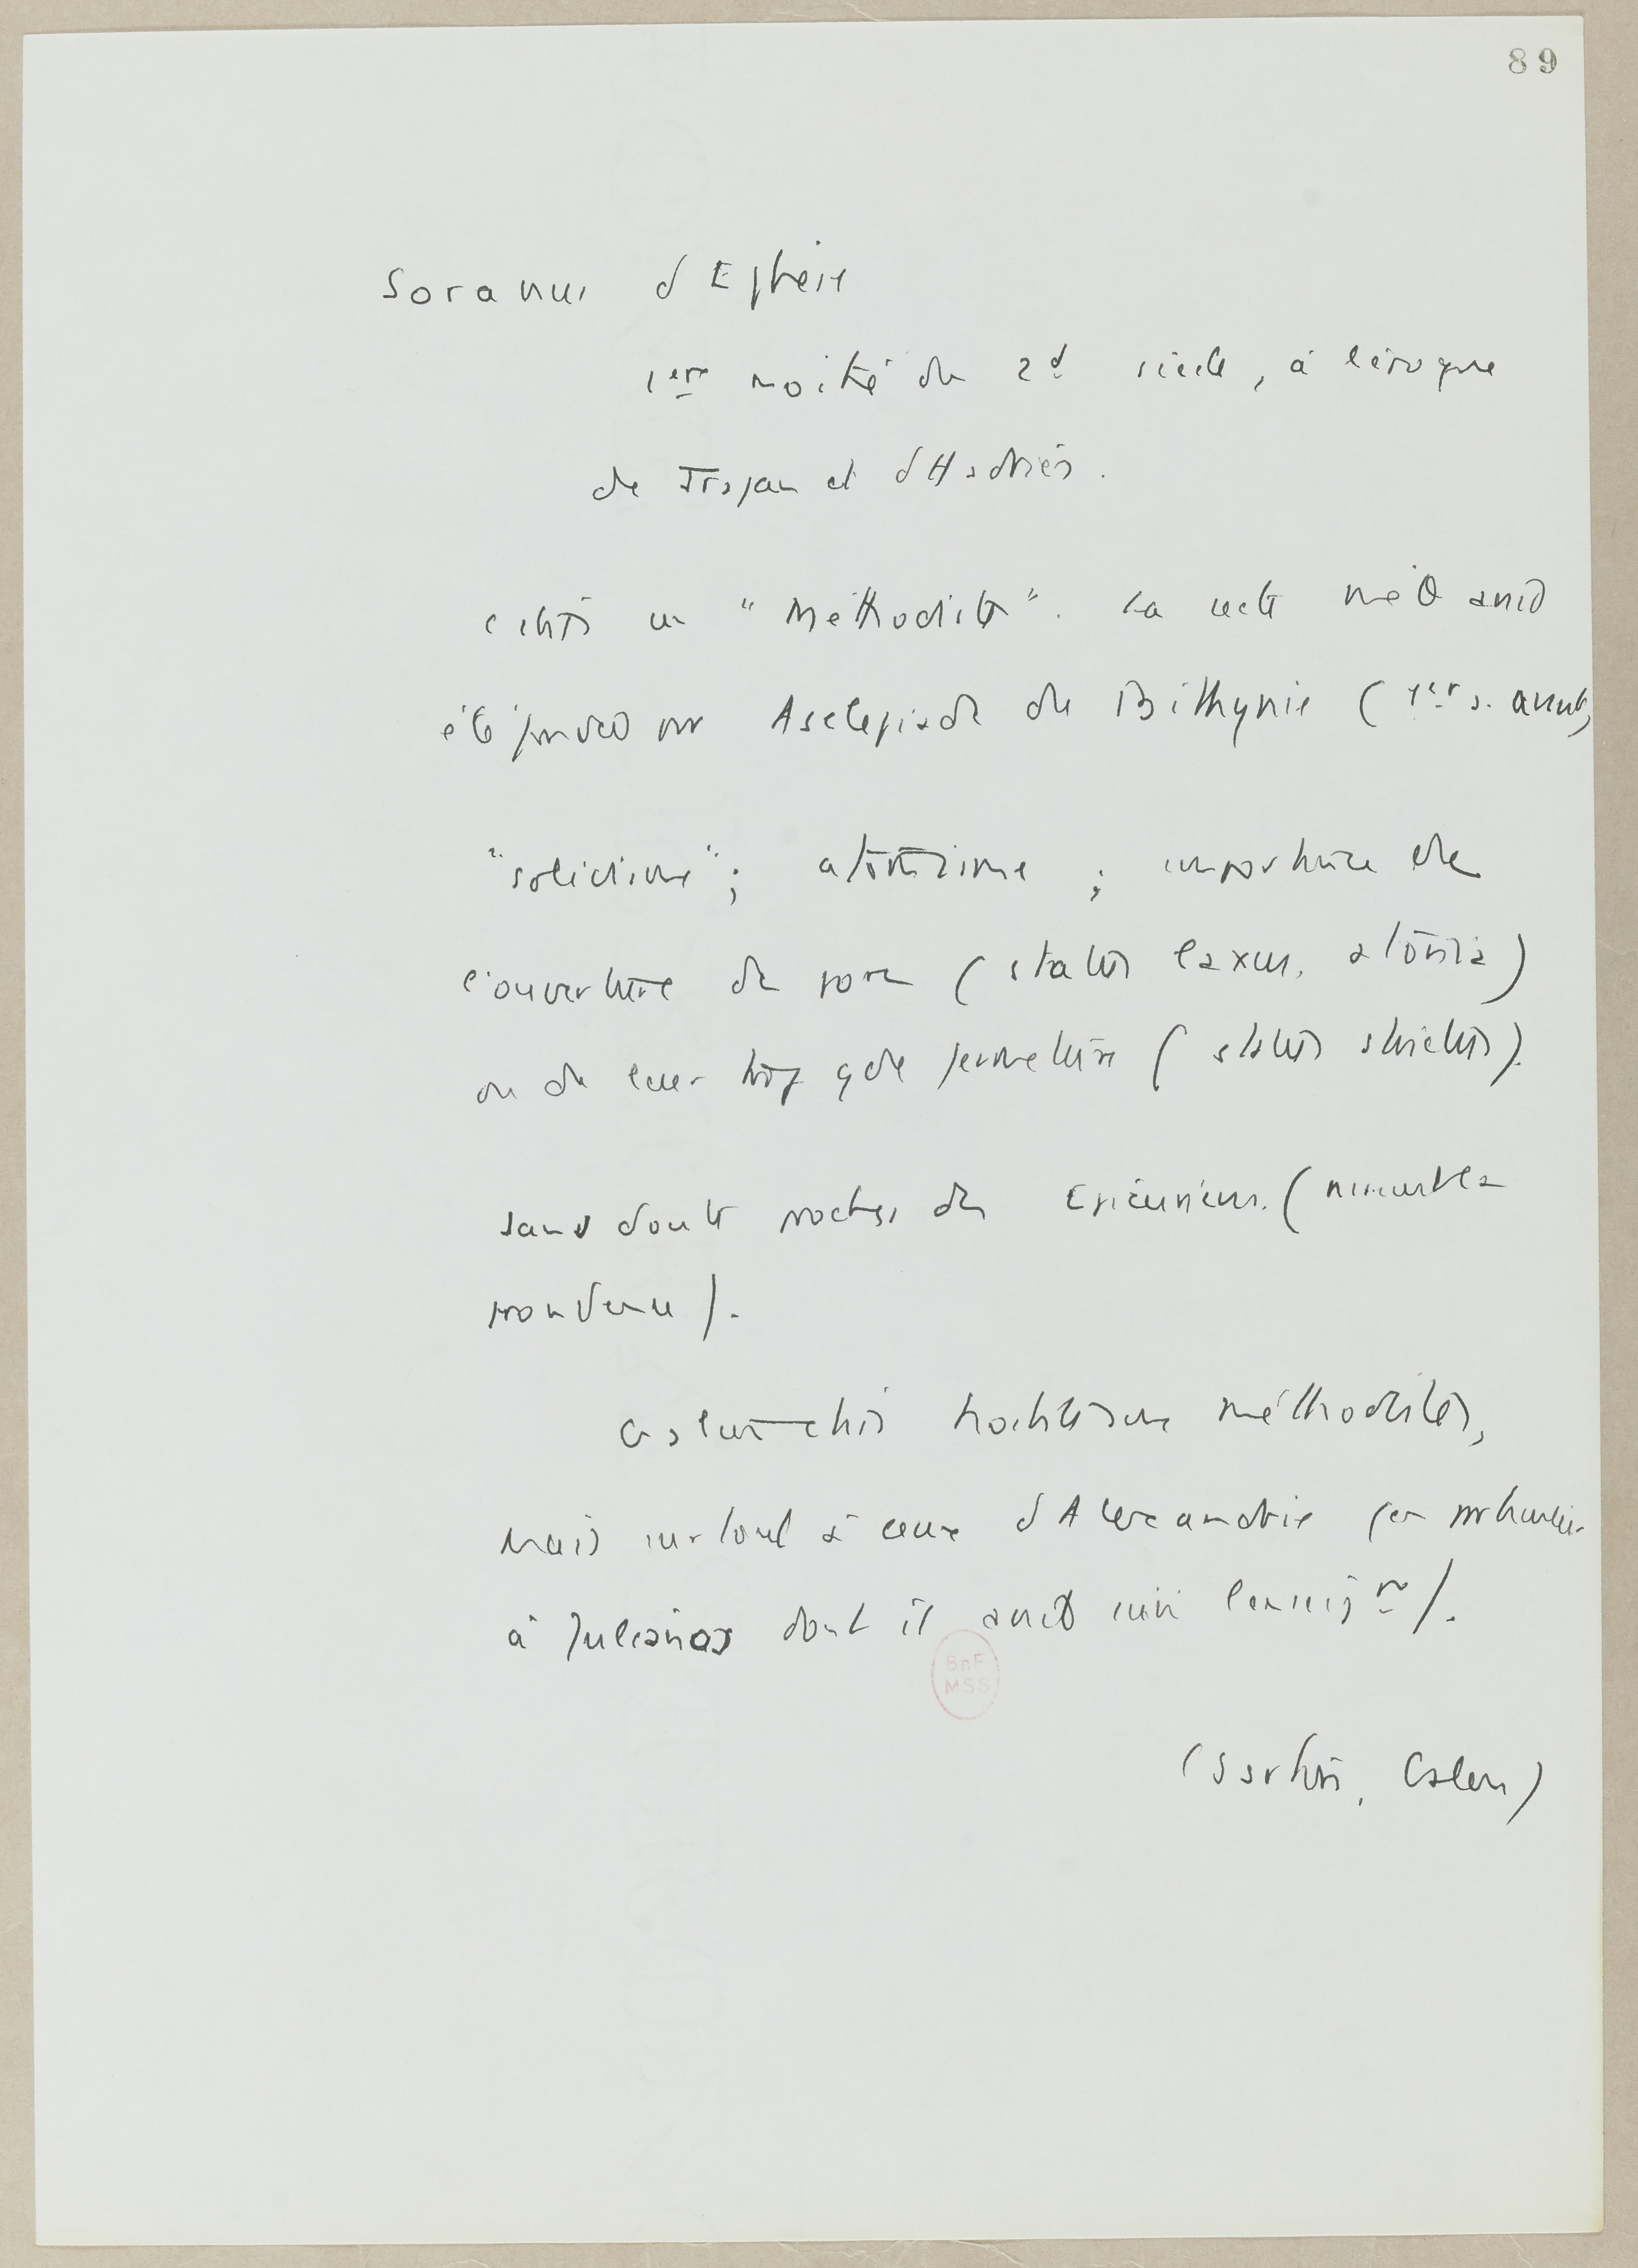 89
Soranus d'Ephèse
1ere moitié du 2d siècle, à l'époque
de Trajan et d'Hadrien.
c'était un "Méthodiste". La secte avait
été fondée par Asclepiade de Bithynie (1er s. avant)
"solidisme"; atomisme ; importance de
l'ouverture des pores (status laxus, atonia)
ou de leur trop gde fermeture (status strictus).
sans doute proches des Epicuriens. (
).
Galien était hostile aux méthodistes,
mais surtout à ceux d'Alexandrie (en particulier
à Julianos dont il avait suivi l'enseigt).
BnF
MSS
(Sarton, Galen)